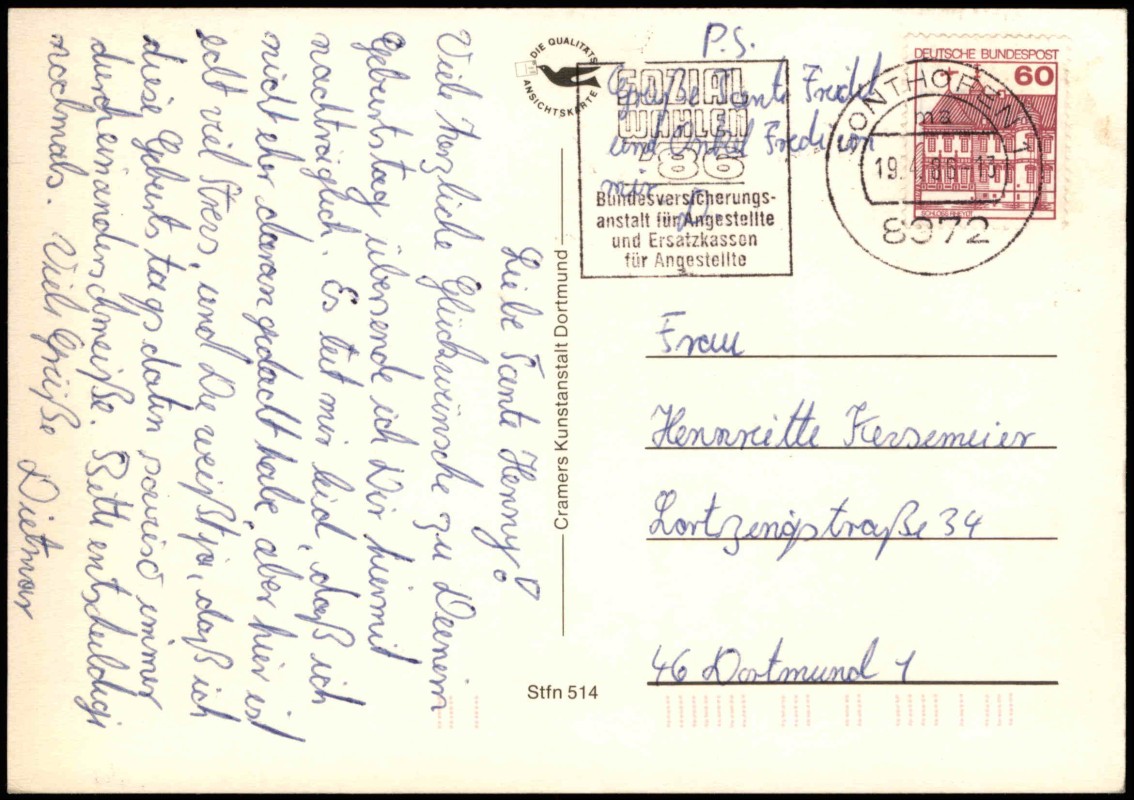 Liebe Tante Henny!
Viele herzliche Glückwünsche zu Deinem
Geburtstag übersende ich Dir hiermit
nachträglich. Es tut mir leid, daß ich
nicht eher daran gedacht habe, aber hier ist
echt viel Stress, und Du weißt ja, daß ich
diese Geburtstagsdaten sowieso immer
durcheinanderschmeiße. Bitte entschuldige
nochmals. Viele Grüße
Dietmar
DIE QUALITÄTS
ANSICHTSKARTE
Cramers Kunstanstalt Dortmund
Stfn 514
P.S.
Grüße Tante Friedel
und Onkel Fredi von
mir
SOZIAL
WAHLEN
'86
Bundesversicherungs-
anstalt für Angestellte
und Ersatzkassen
für Angestellte
DEUTSCHE BUNDESPOST
60
SCHLOSS RHEYDT
19.4.86-13
8972
Frau
Hennriette Kersemeier
Lortzingstraße 34
46 Dortmund 1